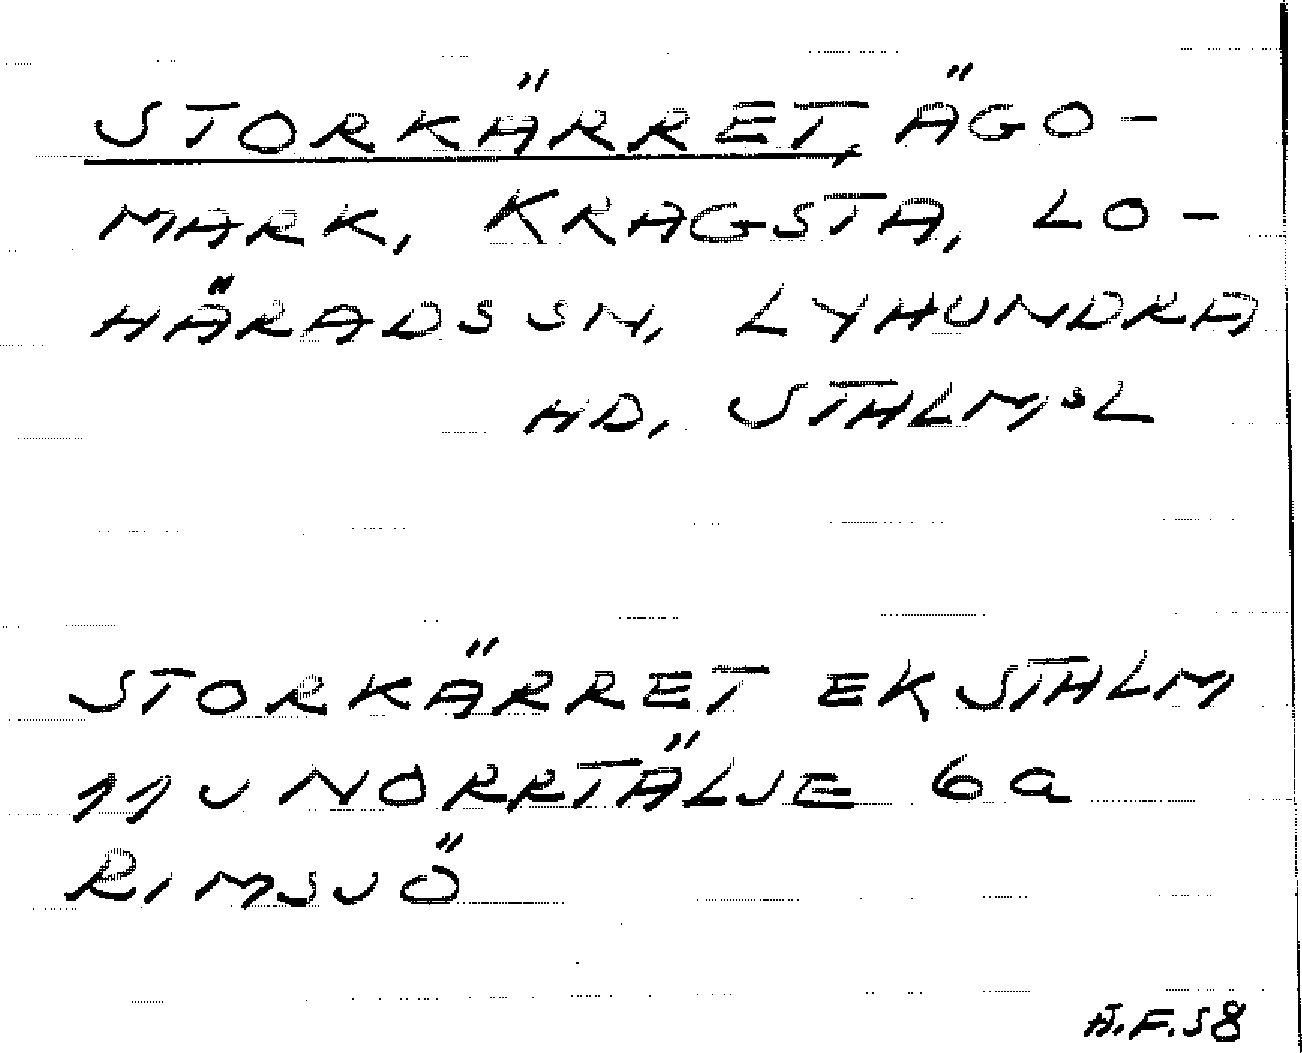 STORKÄRRET, ÄGO-
MARK, KRAGSTA, LO-
HÄRADS SN, LYHUNDRA
HD, STHLMSL
STORKÄRRET EK STHLM
11 J NORRTÄLJE 6a
RIMSJÖ
A.F.58